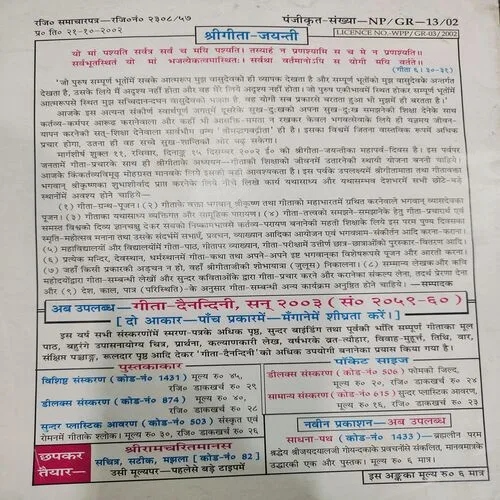 रजि० समाचारपत्र—रजि०नं० २३०८/५७
पंजीकृत-संख्या—NP/GR—13/02
प्र० ति० २१-१०-२००२
LICENCE NO.-WPP/GR-03/2002
श्रीगीता-जयन्ती
यो मां पश्यति सर्वत्र सर्वं च मयि पश्यति। तस्याहं न प्रणश्यामि स च मे न प्रणश्यति॥
सर्वभूतस्थितं यो मां भजत्येकत्वमास्थितः। सर्वथा वर्तमानोऽपि स योगी मयि वर्तते॥
(गीता ६। ३०-३१)
'जो पुरुष सम्पूर्ण भूतोंमें सबके आत्मरूप मुझ वासुदेवको ही व्यापक देखता है और सम्पूर्ण भूतोंको मुझ वासुदेवके अन्तर्गत
देखता है, उसके लिये मैं अदृश्य नहीं होता और वह मेरे लिये अदृश्य नहीं होता। जो पुरुष एकीभावमें स्थित होकर सम्पूर्ण भूतोंमें
आत्मरूपसे स्थित मुझ सच्चिदानन्दघन वासुदेवको भजता है, वह योगी सब प्रकारसे बरतता हुआ भी मुझमें ही बरतता है।'
आजके इस अत्यन्त संकीर्ण स्वार्थपूर्ण जगत्‌में दूसरेके सुख-दुःखको अपना सुख-दुःख समझनेकी शिक्षा देनेके साथ
कर्तव्य-कर्मपर आरूढ़ करानेवाला और कहीं भी आसक्ति-ममता न रखकर केवल भगवत्सेवाके लिये ही यज्ञमय जीवन-
यापन करनेकी सत्-शिक्षा देनेवाला सार्वभौम ग्रन्थ 'श्रीमद्भगवद्गीता' ही है। इसका विश्वमें जितना वास्तविक रूपमें अधिक
प्रचार होगा, उतना ही वह सच्चे सुख-शान्तिकी ओर बढ़ सकेगा।
मार्गशीर्ष शुक्ल ११, रविवार, दिनाङ्क १५ दिसम्बर २००२ ई० को श्रीगीता-जयन्तीका महापर्व-दिवस है। इस पर्वपर
जनतामें गीता-प्रचारके साथ ही श्रीगीताके अध्ययन—गीताकी शिक्षाको जीवनमें उतारनेकी स्थायी योजना बननी चाहिये।
आजके किंकर्तव्यविमूढ मोहग्रस्त मानवके लिये इसकी बड़ी आवश्यकता है। इस पर्वके उपलक्ष्यमें श्रीगीतामाता तथा गीतावक्ता
भगवान् श्रीकृष्णका शुभाशीर्वाद प्राप्त करनेके लिये नीचे लिखे कार्य यथासाध्य और यथासम्भव देशभरमें सभी छोटे-बड़े
स्थानोंमें अवश्य होने चाहिये—
(१) गीता-ग्रन्थ-पूजन। (२) गीताके वक्ता भगवान् श्रीकृष्ण तथा गीताको महाभारतमें ग्रथित करनेवाले भगवान् व्यासदेवका
पूजन। (३) गीताका यथासाध्य व्यक्तिगत और सामूहिक पारायण। (४) गीता-तत्त्वको समझने-समझानेके हेतु गीता-प्रचारार्थ एवं
समस्त विश्वको दिव्य ज्ञानचक्षु देकर सबको निष्कामभावसे कर्तव्य-परायण बनानेकी महती शिक्षाके लिये इस परम पुण्य दिवसका
स्मृति-महोत्सव मनाना तथा उसके संदर्भमें सभाएँ, प्रवचन, व्याख्यान आदिका आयोजन एवं भगवन्नाम-संकीर्तन आदि करना-कराना।
(५) महाविद्यालयों और विद्यालयोंमें गीता-पाठ, गीतापर व्याख्यान, गीता-परीक्षामें उत्तीर्ण छात्र-छात्राओंको पुरस्कार-वितरण आदि।
(६) प्रत्येक मन्दिर, देवस्थान, धर्मस्थानमें गीता-कथा तथा अपने-अपने इष्ट भगवान्‌का विशेषरूपसे पूजन और आरती करना।
(७) जहाँ किसी प्रकारकी अड़चन न हो, वहाँ श्रीगीताजीकी शोभायात्रा (जुलूस) निकालना। (८) सम्मान्य लेखक और कवि
महोदयोंद्वारा गीता-सम्बन्धी लेखों और सुन्दर कविताओंके द्वारा गीता-प्रचार करने और करानेका संकल्प लेना, तदर्थ प्रेरणा देना
और (९) देश, काल, पात्र (परिस्थिति)-के अनुसार गीता-सम्बन्धी अन्य कार्यक्रम अनुष्ठित होने चाहिये। —सम्पादक
अब उपलब्ध—गीता-दैनन्दिनी, सन् २००३ (सं० २०५९-६०)
[दो आकार—पाँच प्रकारमें—मँगानेमें शीघ्रता करें।]
इस वर्ष सभी संस्करणोंमें स्मरण-पत्रके अधिक पृष्ठ, सुन्दर बाइंडिंग तथा पूर्वकी भाँति सम्पूर्ण गीताका मूल
पाठ, बहुरंगे उपासनायोग्य चित्र, प्रार्थना, कल्याणकारी लेख, वर्षभरके व्रत-त्योहार, विवाह-मुहूर्त्त, तिथि, वार,
संक्षिप्त पञ्चाङ्ग, रूलदार पृष्ठ आदि देकर 'गीता-दैनन्दिनी'को अधिक उपयोगी बनानेका प्रयास किया गया है।
पुस्तकाकार
विशिष्ट संस्करण (कोड-नं० 1431) मूल्य रु० ४५,
रजि० डाकखर्च रु० २९
डीलक्स संस्करण (कोड-नं० 874) मूल्य रु० ४०,
रजि० डाकखर्च रु० २८
सुन्दर प्लास्टिक आवरण (कोड-नं० 503) संस्कृत एवं
रोमनमें गीताके श्लोक। मूल्य रु० ३०, रजि० डाकखर्च रु० २६
पॉकेट साइज
डीलक्स संस्करण (कोड-नं० 506) फोमकी जिल्द,
मूल्य रु० २०, रजि० डाकखर्च रु० २४
सामान्य संस्करण (कोड-नं० 615) सुन्दर प्लास्टिक आवरण,
मूल्य रु० १६, रजि० डाकखर्च रु० २३
नवीन प्रकाशन—अब उपलब्ध
साधना-पथ (कोड-नं० 1433)—ब्रह्मलीन परम
श्रद्धेय श्रीजयदयालजी गोयन्दकाके प्रवचनोंसे संकलित, मानवमात्रके
उद्धारकी एक और पुस्तक। मूल्य रु० ६ मात्र।
छपकर
तैयार—
श्रीरामचरितमानस
सचित्र, सटीक, मझला [कोड-नं० 82]
उसी मूल्यपर—पहलेसे बड़े टाइपमें
इस अङ्कका मूल्य रु० ६ मात्र